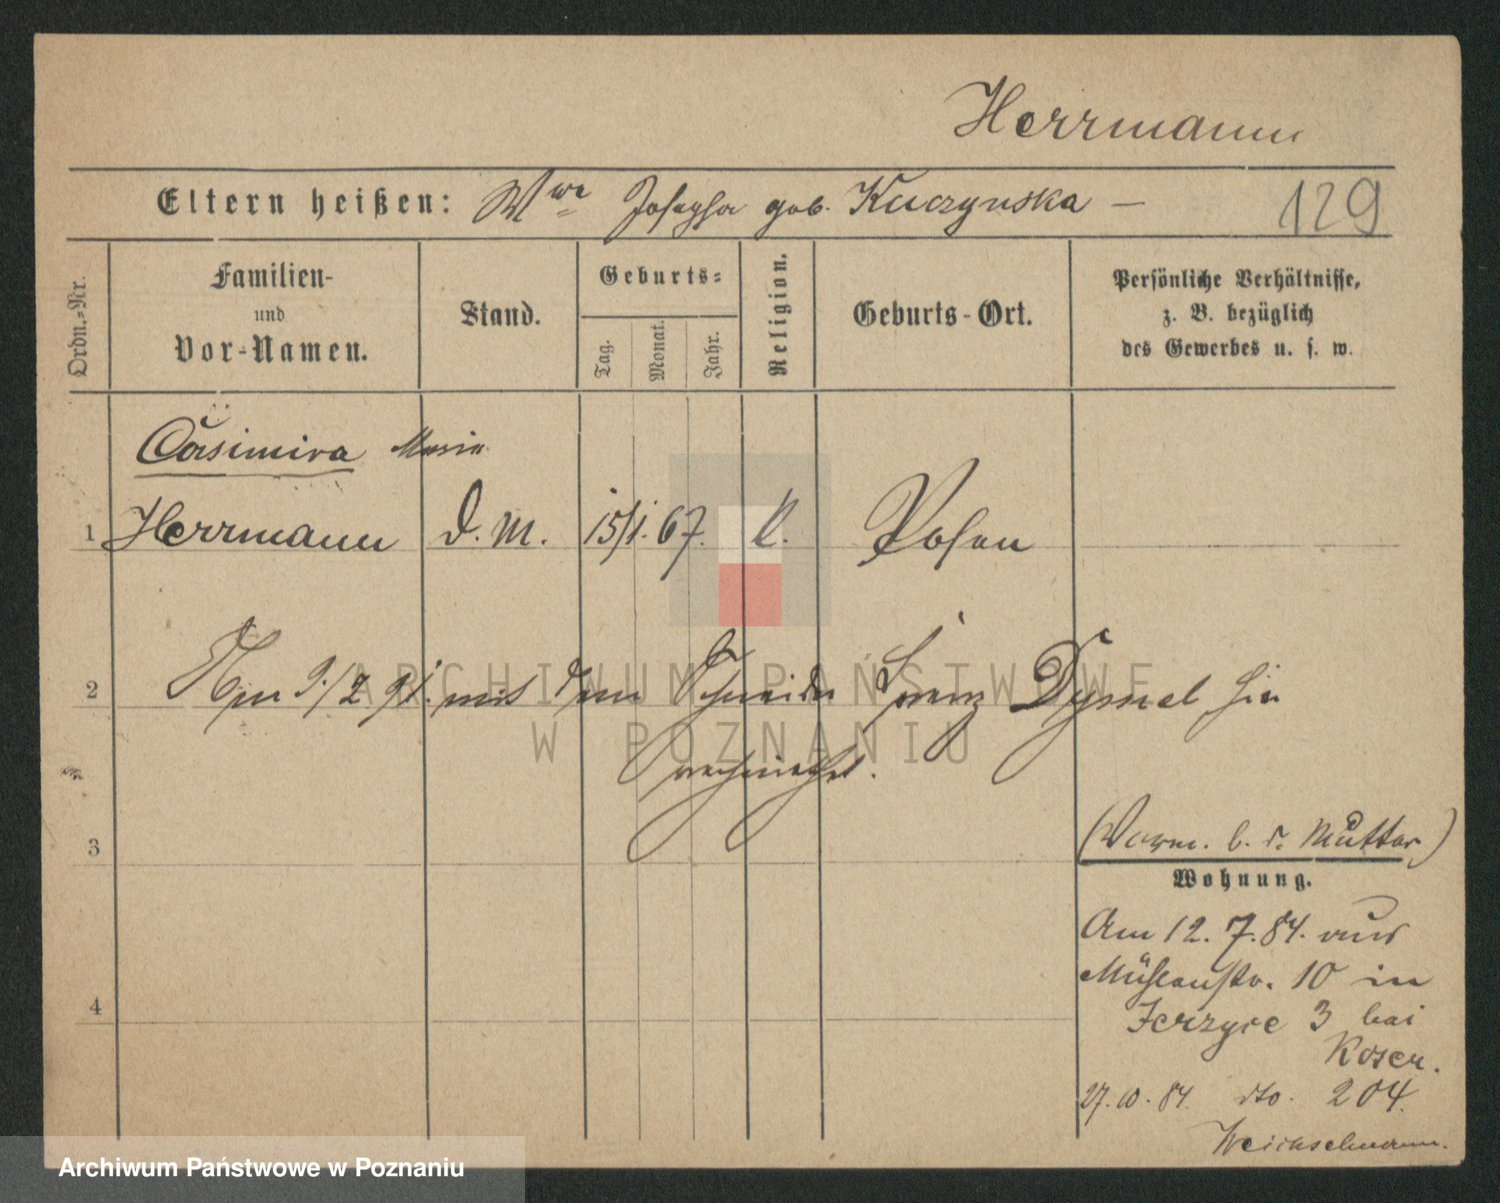 Herrmann
Eltern heißen: Wwe Josepha geb. Kuczynska — 129
Ordn.-Nr.
Familien-
und
Vor-Namen.
Stand.
Geburts-
Tag.
Monat.
Jahr.
Religion.
Geburts-Ort.
Persönliche Verhältnisse,
z. B. bezüglich
des Gewerbes u. s. w.
Casimira Maria
1 Herrmann D. M. 15/1. 67. k. Posen
2 Am 9./2 91. mit dem Schneider Lorenz Dymel hier
verheirathet.
3
(Vorm. b. d. Mutter)
Wohnung.
Am 12. 7. 84. aus
Mühlenstr. 10 in
Jerzyce 3 bei
Koser.
4
27. 10. 84. dto. 204.
Weichselmann.
ARCHIWUM PAŃSTWOWE
W POZNANIU
Archiwum Państwowe w Poznaniu